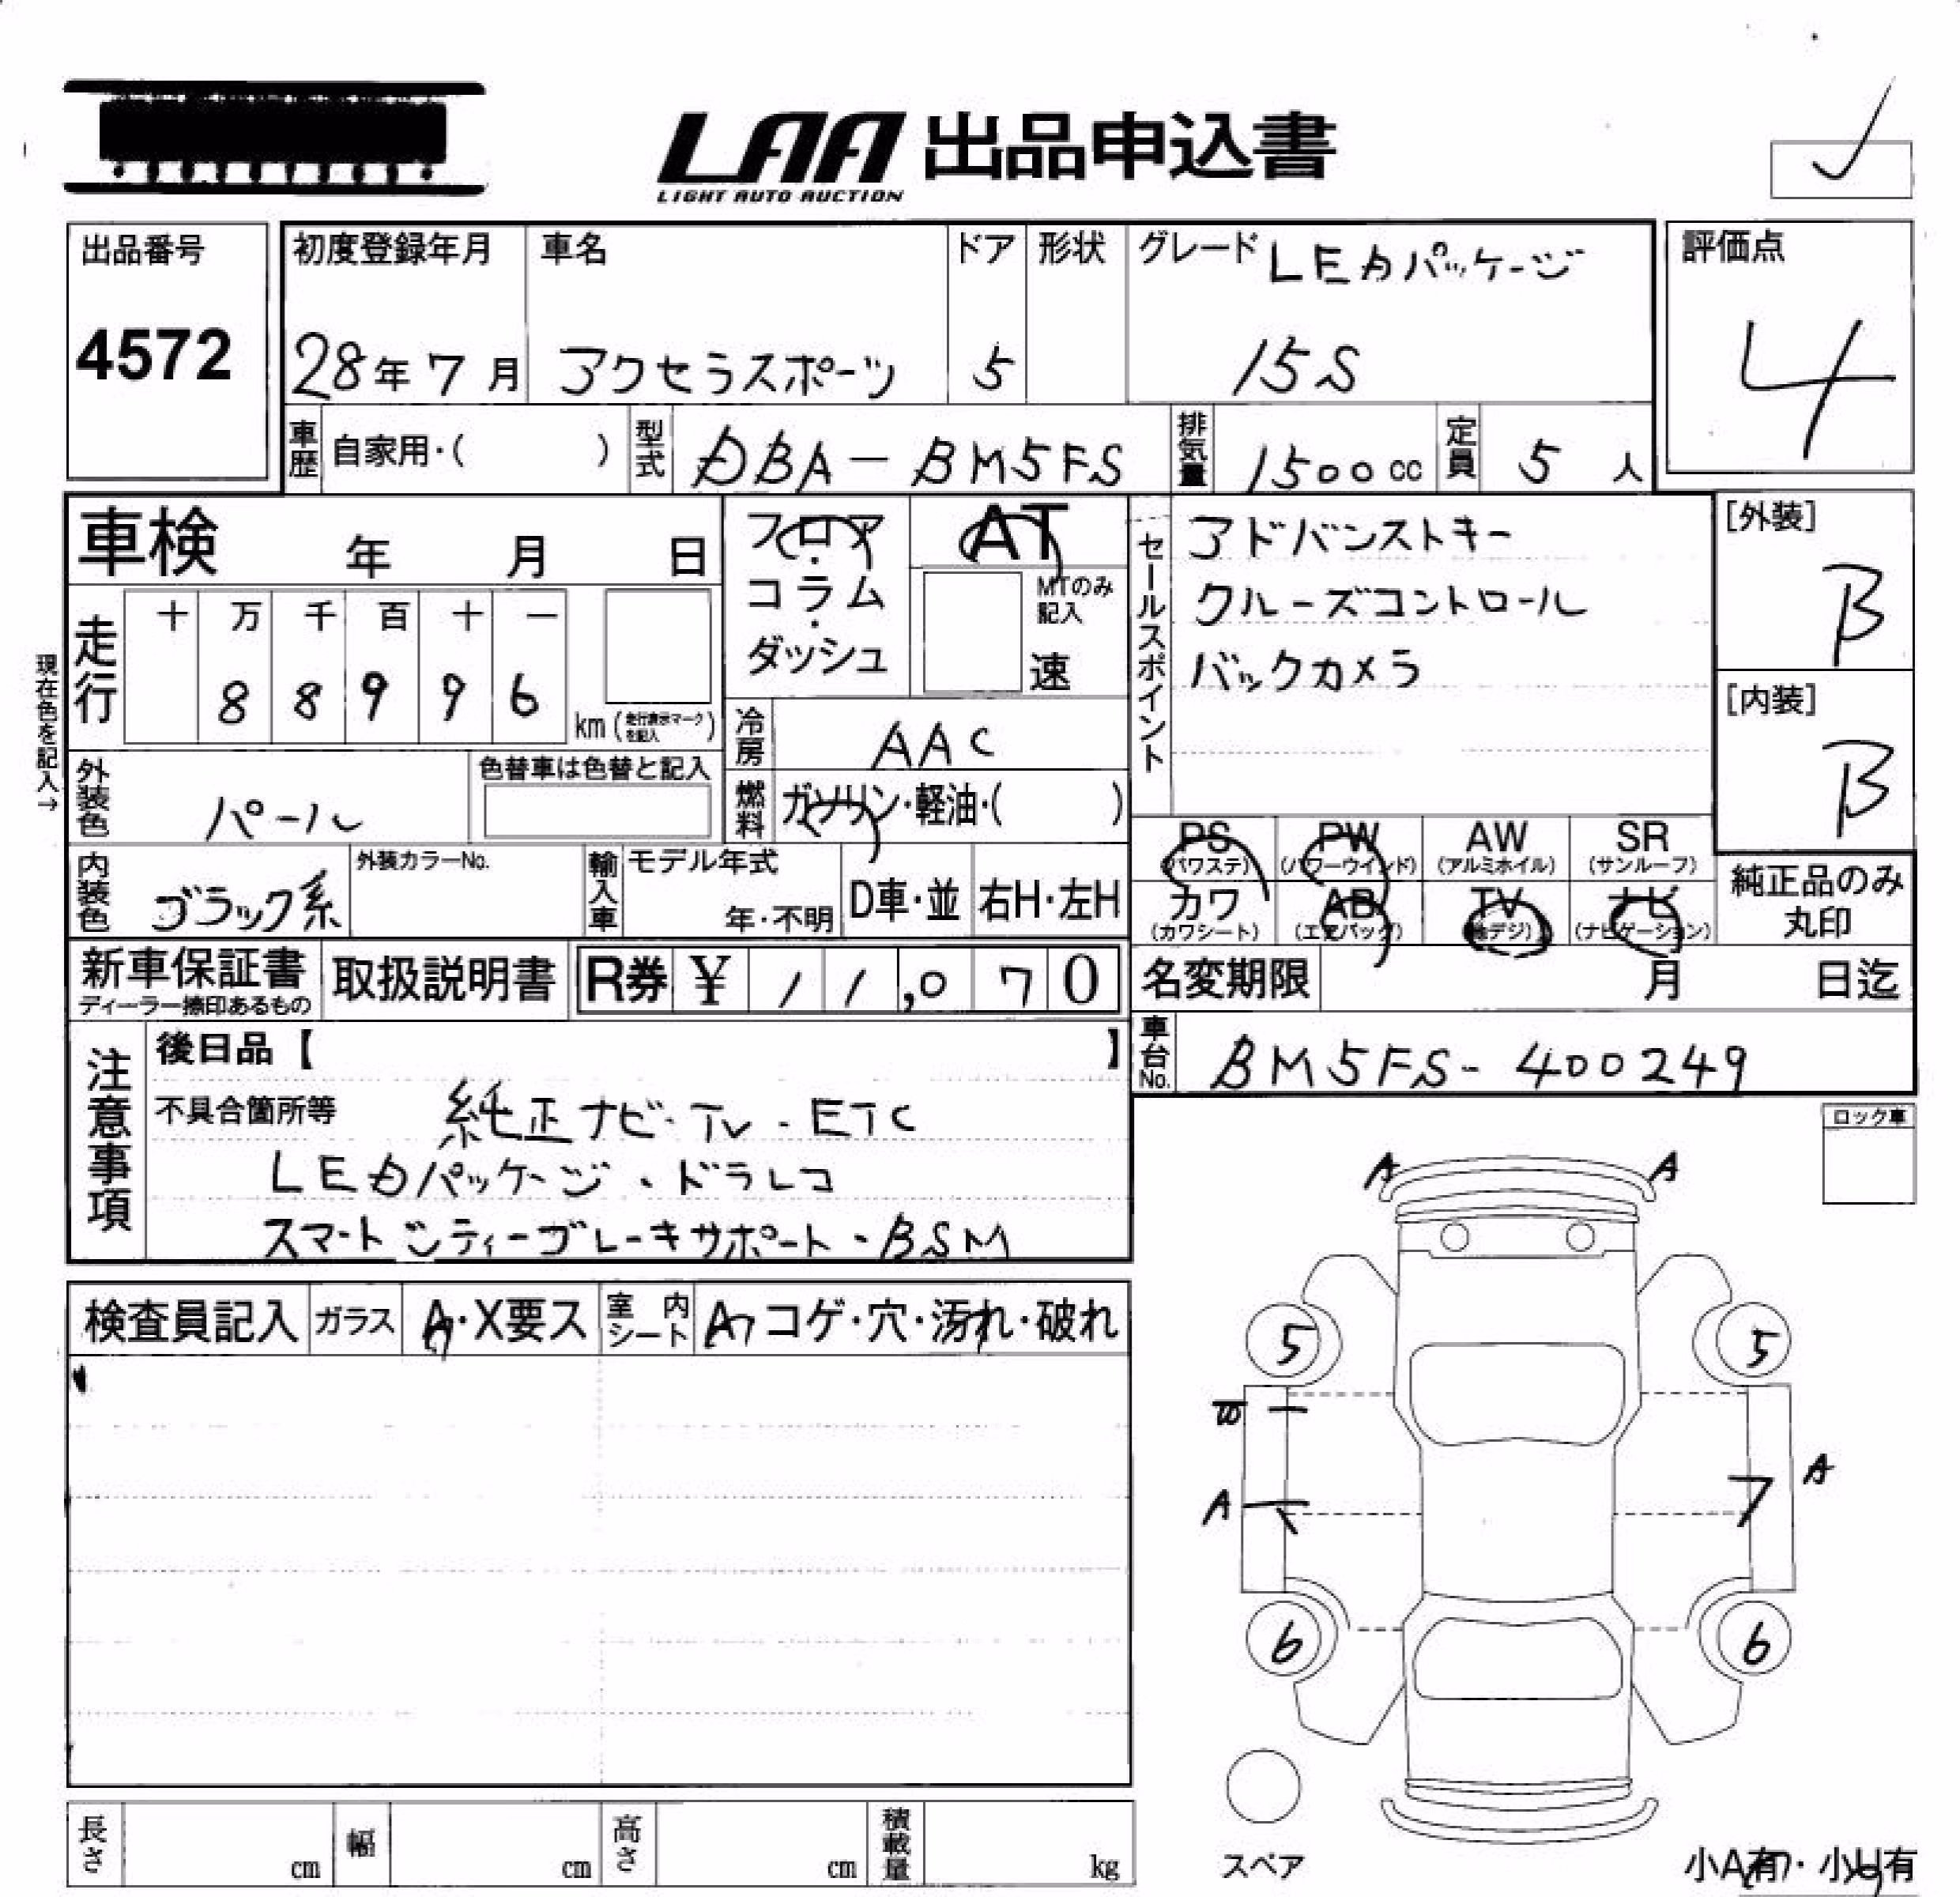 LAA 出品申込書
LIGHT AUTO AUCTION
出品番号
4572
初度登録年月
28年7月
車名
アクセラスポーツ
ドア
5
形状
グレード LEDパッケージ
15S
評価点
4
車歴 自家用・( )
型式 DBA-BM5FS
排気量 1500cc
定員 5人
車検 年 月 日
フロア・コラム・ダッシュ
AT
MTのみ記入
速
セールスポイント
アドバンストキー
クルーズコントロール
バックカメラ
[外装]
B
[内装]
B
現在色を記入→
走行
十 万 千 百 十 一
8 8 9 9 6
km (走行表示マークを記入)
冷房 AAC
燃料 ガソリン・軽油・( )
外装色 パール
色替車は色替と記入
内装色 ブラック系
外装カラーNo.
輸入車
モデル年式
年・不明
D車・並
右H・左H
PS (パワステ)
PW (パワーウインド)
AW (アルミホイル)
SR (サンルーフ)
カワ (カワシート)
AB (エアバッグ)
TV (地デジ)
ナビ (ナビゲーション)
純正品のみ丸印
新車保証書
ディーラー捺印あるもの
取扱説明書
R券 ¥ 11,070
名変期限 月 日迄
車台No. BM5FS-400249
注意事項
後日品【 】
不具合箇所等 純正ナビ・TV・ETC
LEDパッケージ・ドラレコ
スマートシティーブレーキサポート・BSM
ロック車
A A
検査員記入
ガラス
A・X要ス
室内シート
A コゲ・穴・汚れ・破れ
5 5
A A
6 6
スペア
小A有・小U有
長さ cm
幅 cm
高さ cm
積載量 kg